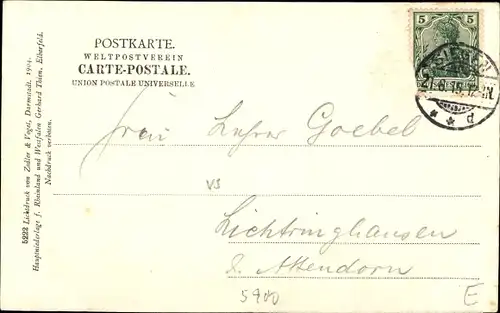 POSTKARTE.
WELTPOSTVEREIN
CARTE-POSTALE.
UNION POSTALE UNIVERSELLE
5
5
21.6.
d
Frau Lehrer Goebel
vs
Lichtringhausen
b. Attendorn
5900
E
5222 Lichtdruck von Zedler & Vogel, Darmstadt. 1904.
Hauptniederlage f. Rheinland und Westfalen Gerhard Thien, Elberfeld.
Nachdruck verboten.